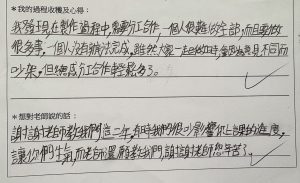 *我的過程收穫及心得：
我發現在製作過程中,需要分工合作,一個人很難做全部,而且要做
很多事,一個人沒有辦法完成,雖然大家一起做時,會因為意見不同而
吵架,但總感分工合作輕鬆多了。
*想對老師說的話：
謝謝老師教我們這二年,有時我們很吵影響你上課的進度,
讓你們生氣,而老師還願教我們,謝謝老師您辛苦了。